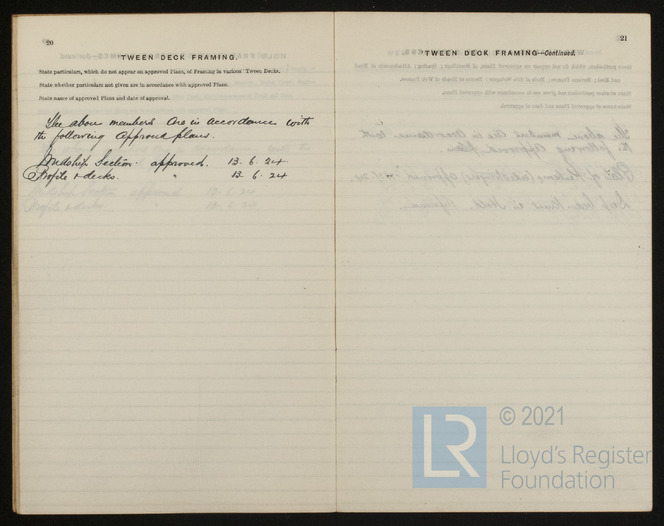 20
TWEEN DECK FRAMING.
State particulars, which do not appear on approved Plans, of Framing in various 'Tween Decks.
State whether particulars not given are in accordance with approved Plans.
State name of approved Plans and date of approval.
The above members are in accordance with
the following approved plans.
Midship Section. approved. 13. 6. 24
Profile & decks. " 13. 6. 24
21
TWEEN DECK FRAMING—Continued.
LR
© 2021
Lloyd's Register
Foundation